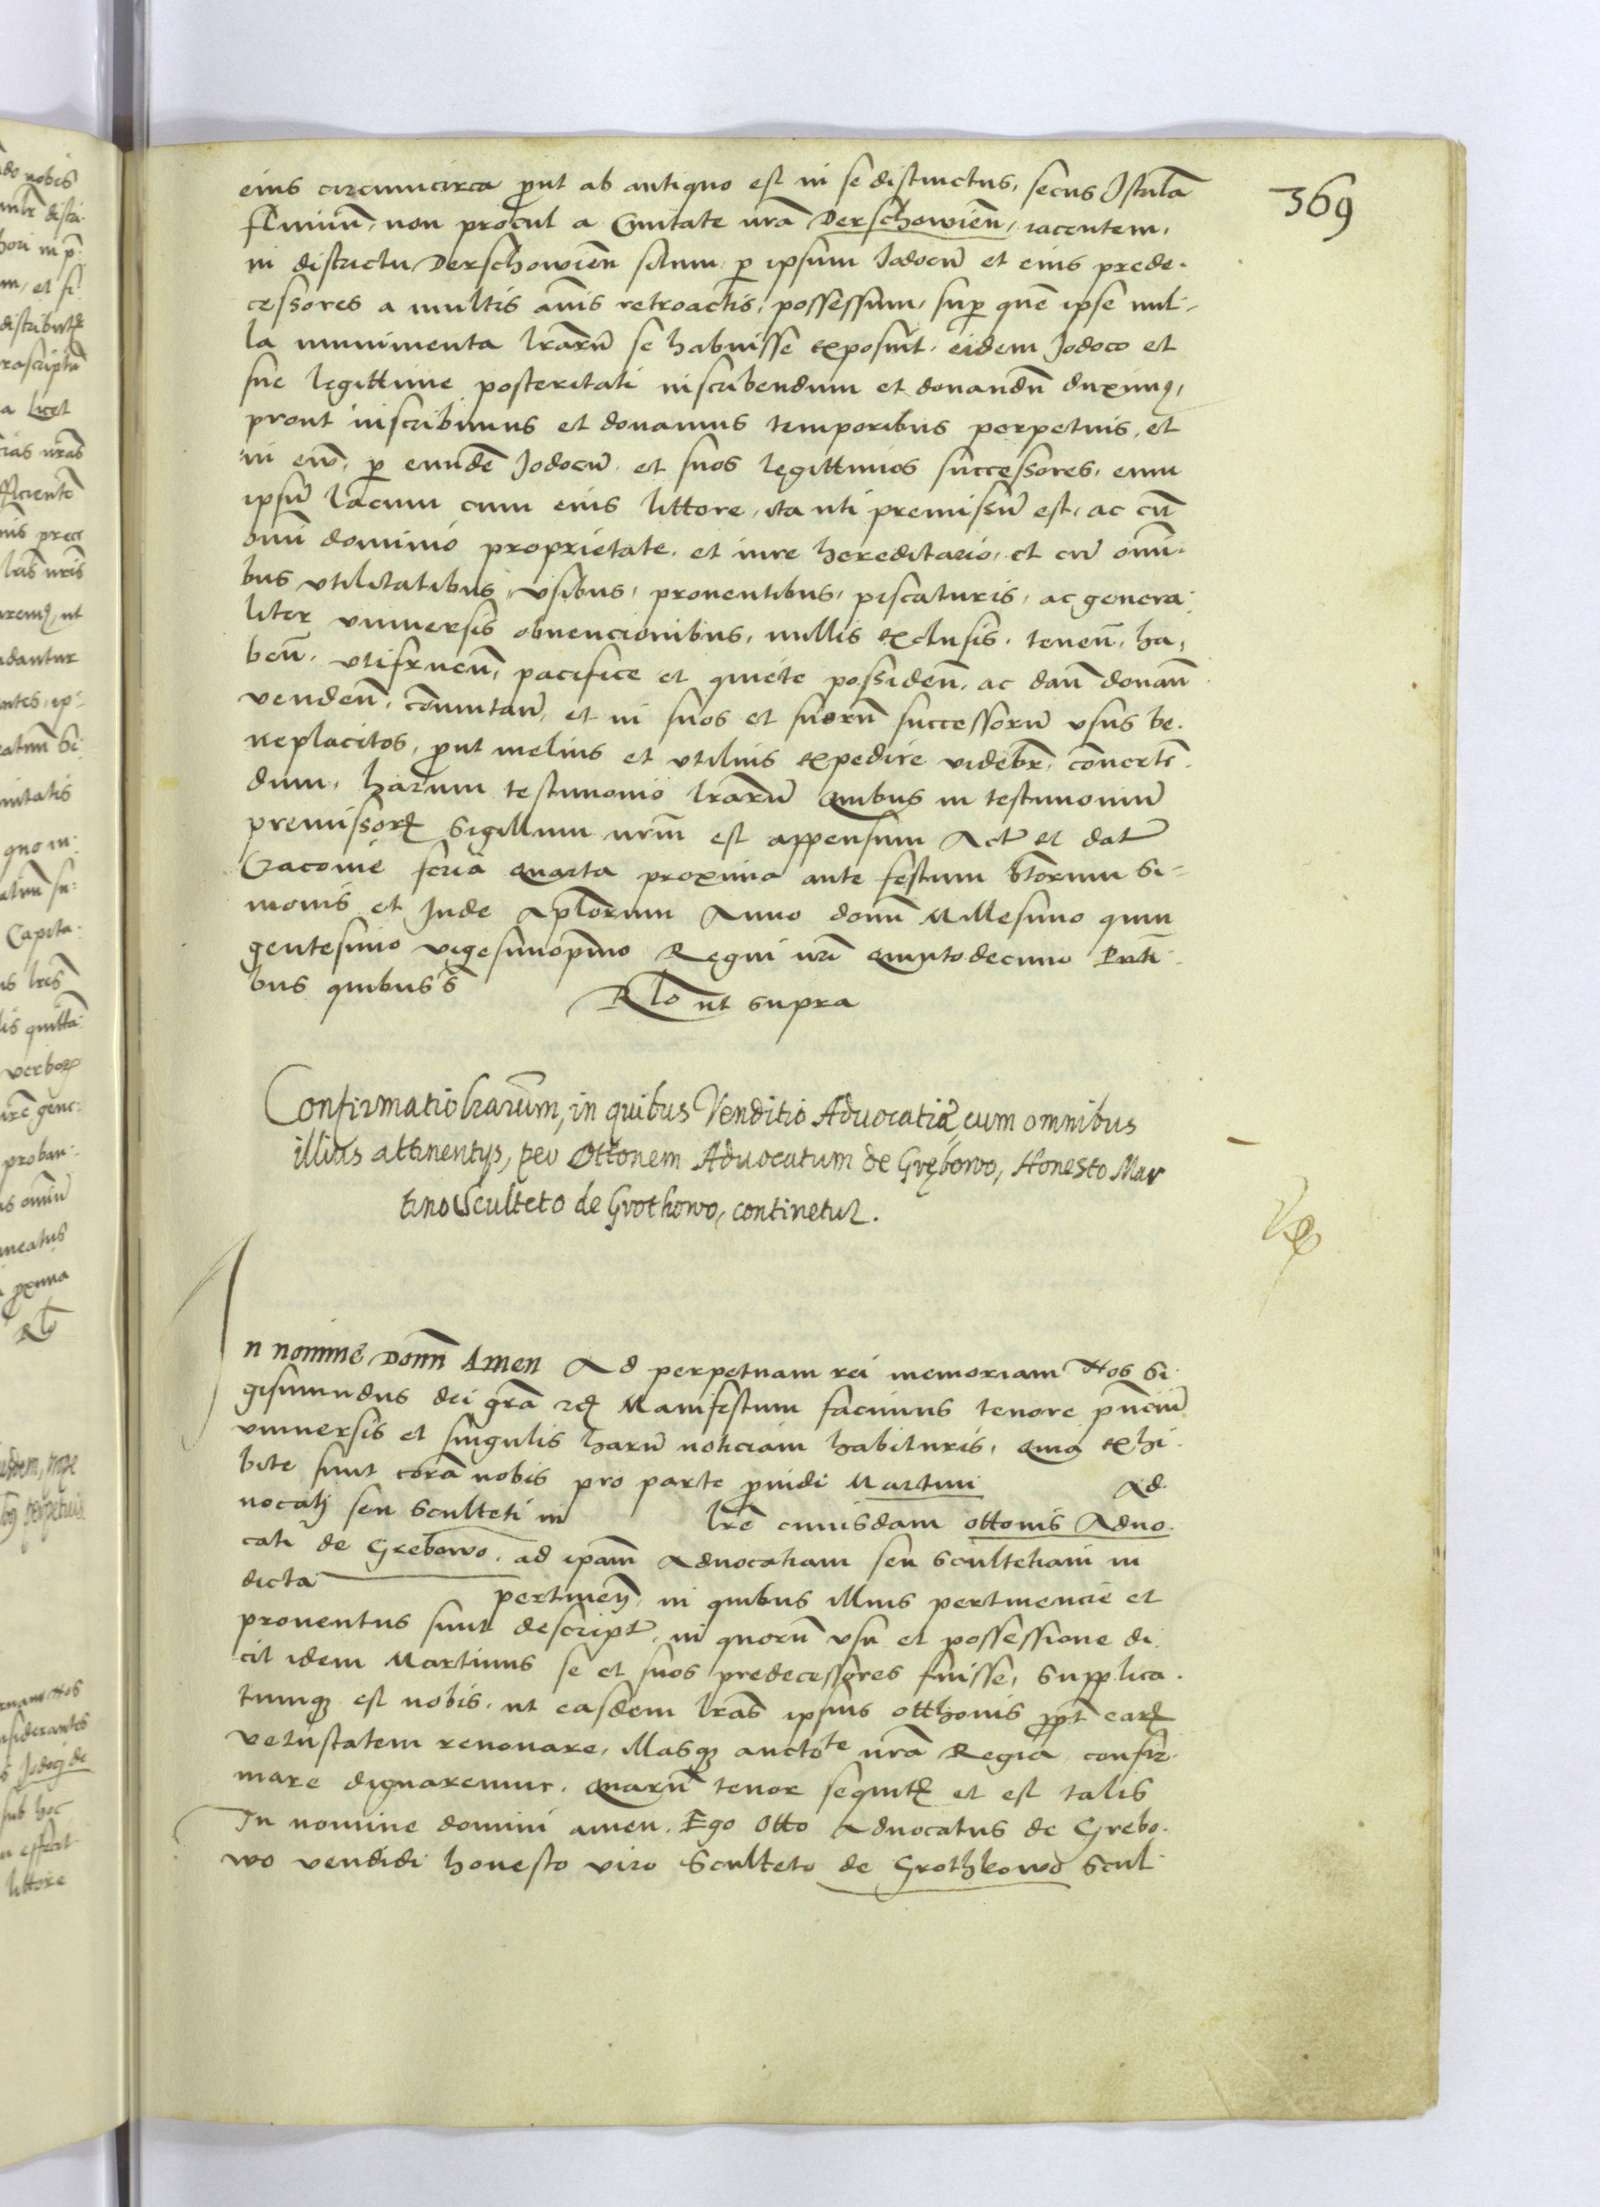 369
eius circumcirca prout ab antiquo est in se distinctus, secus Istulā
fluuiū, non procul a Ciuitate nrā Derschowieñ, iacentem,
in districtu Derschowieñ situm, p ipsum Jodocū et eius prede-
cessores a multis annis retroactis, possessum, sup quē ipse nul-
la munimenta lrarū se habuisse exposuit, eidem Jodoco et
sue legittime posteritati inscribendum et donandū duximus,
prout inscribimus et donamus temporibus perpetuis, et
in euū, p eundē Jodocū et suos legittimos successores, eum
ipsū lacum cum eius littore, ita uti premissū est, ac cū
omni dominio proprietate, et iure hereditario, et cū omni-
bus vtilitatibus, vsibus, prouentibus, piscaturis, ac genera-
liter vniuersis obuencionibus, nullis exclusis, teneñ, ha-
beñ, vtifrueñ, pacifice et quiete possideñ, ac dañ donañ
vendeñ, comutañ, et in suos et suorū successorū vsus be-
neplacitos, prout melius et vtilius expedire videbr̄, conuerten-
dum, harum testimonio lrarū Quibus in testimoniū
premissorum Sigillum nrm̄ est appensum Act et dat
Cracouie feria quarta proxima ante festum Sctorum Si-
monis et Jude Aplorum Anno domi Millesimo quin
gentesimo vigesimoprimo Regni nri Quintodecimo Pnti-
bus quibus s
Rlo ut supra
Confirmatio lrarum, in quibus Venditio Aduocatiæ, cum omnibus
illius attinentys, per Ottonem Aduocatum de Grębowo, Honesto Mar
tino Sculteto de Grothowo, continetur.
In nomine Domi Amen Ad perpetuam rei memoriam Nos Si-
gismundus dei gra etc Manifestum facimus tenore pnciū
vniuersis et singulis harū noticiam habituris, Quia exhi-
bite sunt corā nobis pro parte prouidi Martini Ad-
uocati seu Sculteti in lre cuiusdam Ottonis Aduo-
cati de Grebowo, ad ipam Aduocatiam seu Scultetiam in
dicta pertineñ, in quibus illius pertinencie et
prouentus sunt descript, in quorū vsu et possessione di-
cit idem Martinus se et suos predecessores fuisse, Supplica-
tumque est nobis, ut easdem lras ipsius Otthonis ppt earum
vetustatem renouare, illasque auctote nra Regia confir-
mare dignaremur, Quarū tenor sequitur et est talis
In nomine domini amen. Ego Otto Aduocatus de Grebo-
wo vendidi honesto viro Sculteto de Grothkowo Scul-